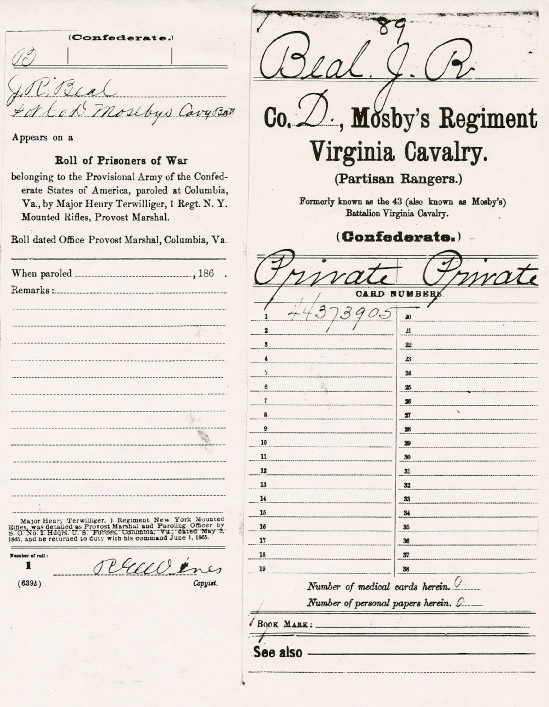 (Confederate.)
B
J. R. Beal
Co D. Mosebys Cavy Batt
Appears on a
Roll of Prisoners of War
belonging to the Provisional Army of the Confed-
erate States of America, paroled at Columbia,
Va., by Major Henry Terwilliger, 1 Regt. N. Y.
Mounted Rifles, Provost Marshal.
Roll dated Office Provost Marshal, Columbia, Va.
When paroled , 186 .
Remarks:
Major Henry Terwilliger, 1 Regiment New York Mounted
Rifles, was detailed as Provost Marshal and Paroling Officer by
S. O. No. 2, Hdqrs. U. S. Forces, Columbia, Va., dated May 5,
1865, and he returned to duty with his command June 1, 1865.
Number of roll:
1
(639b) Copyist.
89
Beal, J. R.
Co. D., Mosby's Regiment
Virginia Cavalry.
(Partisan Rangers.)
Formerly known as the 43 (also known as Mosby's)
Battalion Virginia Cavalry.
(Confederate.)
Private Private
CARD NUMBERS.
1 44373905 20
2 21
3 22
4 23
5 24
6 25
7 26
8 27
9 28
10 29
11 30
12 31
13 32
14 33
15 34
16 35
17 36
18 37
19 38
Number of medical cards herein. 0
Number of personal papers herein. 0
BOOK MARK:
See also